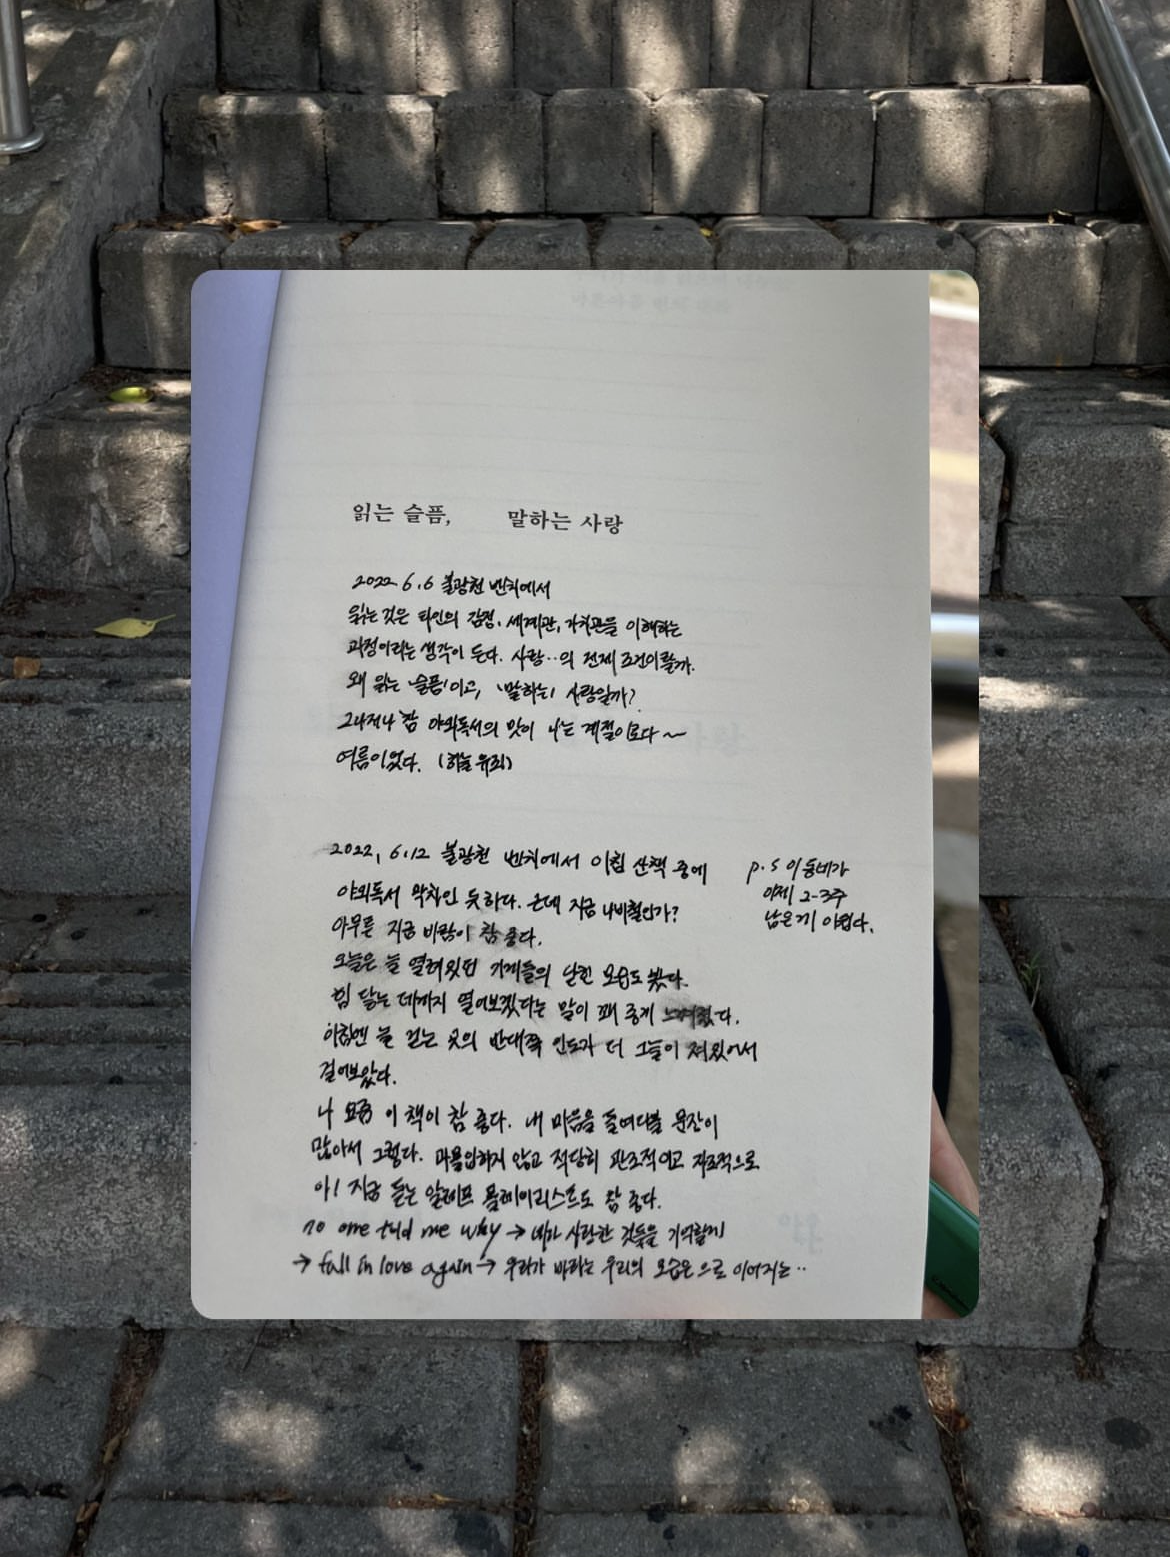 읽는 슬픔, 말하는 사랑
2022. 6. 6 불광천 벤치에서
읽는 것은 타인의 감정, 세계관, 가치관을 이해하는
과정이라는 생각이 든다. 사랑..의 전제 조건이랄까.
왜 읽는 '슬픔'이고, '말하는' 사랑일까?
그나저나 참 야외독서의 맛이 나는 계절이로다~
여름이었다. (하늘 유죄)
2022. 6.12 불광천 벤치에서 아침 산책 중에
야외독서 막차인 듯하다. 근데 지금 나비철인가?
아무튼 지금 바람이 참 좋다.
오늘은 늘 열려있던 가게들의 닫힌 모습도 봤다.
힘 닿는 데까지 열어보겠다는 말이 꽤 좋게 느껴졌다.
아침엔 늘 걷는 곳의 반대쪽 인도가 더 그늘이 져있어서
걸어보았다.
나 요즘 이 책이 참 좋다. 내 마음을 들여다볼 문장이
많아서 그렇다. 과몰입하지 않고 적당히 관조적이고 자조적으로
아! 지금 듣는 알레프 플레이리스트도 참 좋다.
no one told me why → 네가 사랑한 것들을 기억할게
→ fall in love again → 우리가 바라는 우리의 모습은 으로 이어지는..
p.s 이 동네가
이제 2-3주
남은 게 아쉽다.